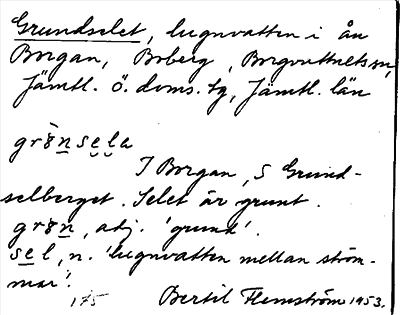 Grundselet, lugnvatten i ån
Borgan, Boberg, Borgvattnets sn,
Jämtl. ö. doms. tg, Jämtl. län
I Borgan, S Grund-
selberget. Selet är grunt.
adj. 'grund'.
sel, n. 'lugnvatten mellan ström-
mar'.
175 Bertil Flemström 1953.